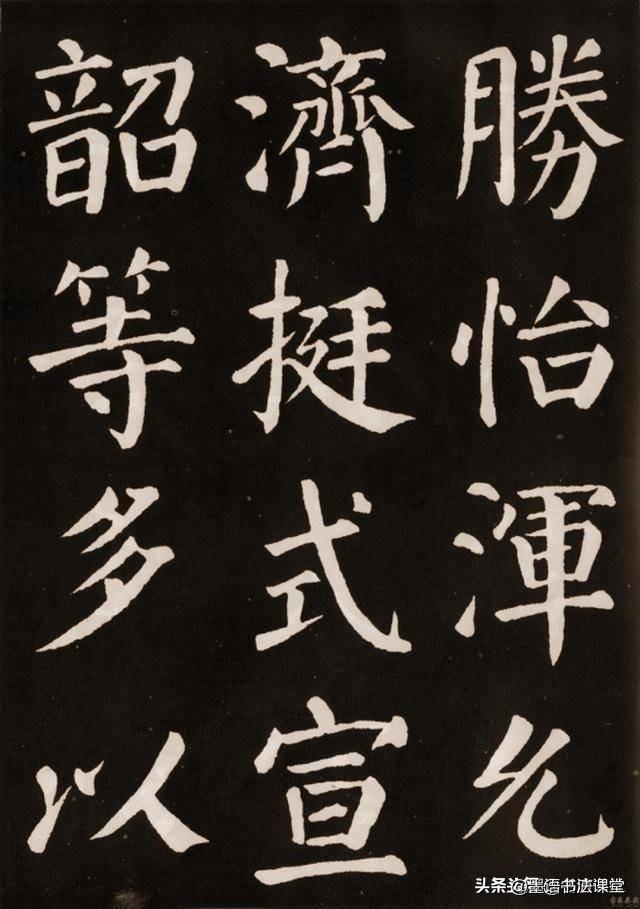 勝怡渾允
濟挺式宣
韶等多以
头条 @墨语书法课堂